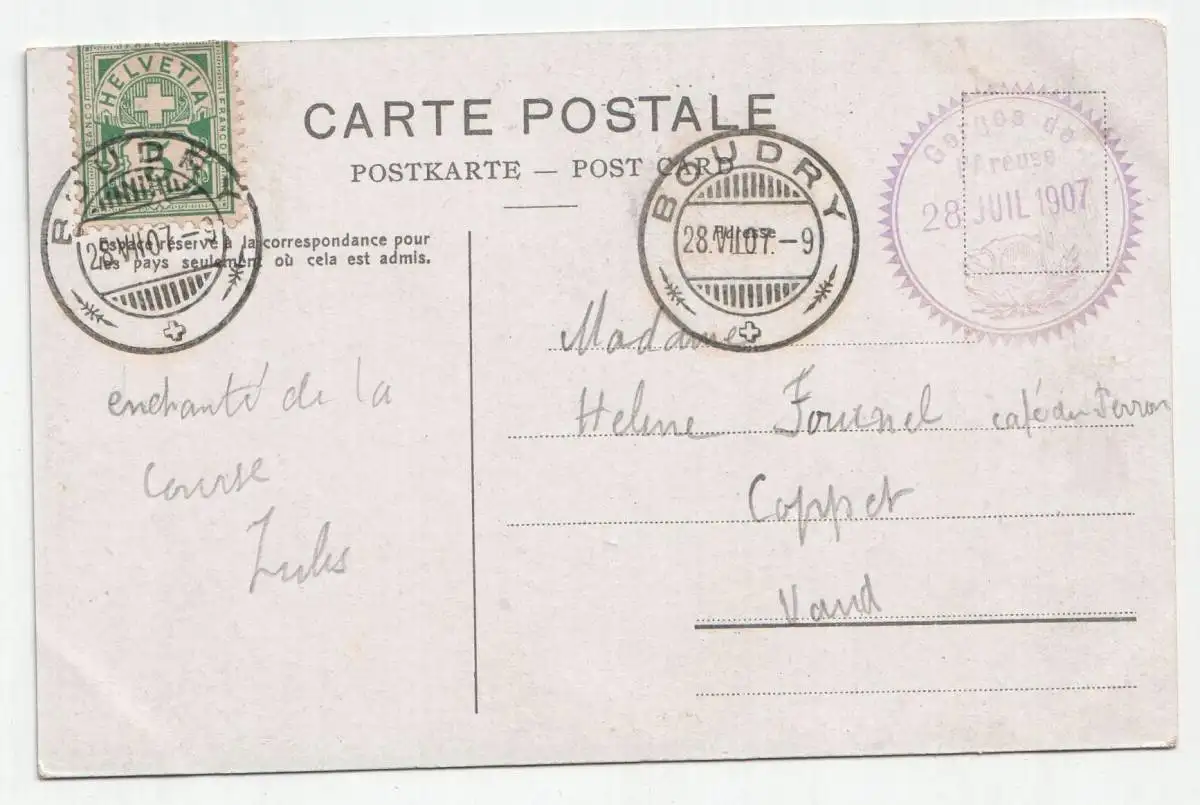 FRANCO
HELVETIA
FRANCO
FRANCO
5
CARTE POSTALE
POSTKARTE — POST CARD
BOUDRY
28.VII.07.-9
BOUDRY
28.VII.07.-9
Gorges de
l'Areuse
28 JUIL 1907
Espace réservé à la correspondance pour
les pays seulement où cela est admis.
Adresse
enchanté de la
course
Jules
Madame
Helene Fournel café du Perron
Coppet
Vaud